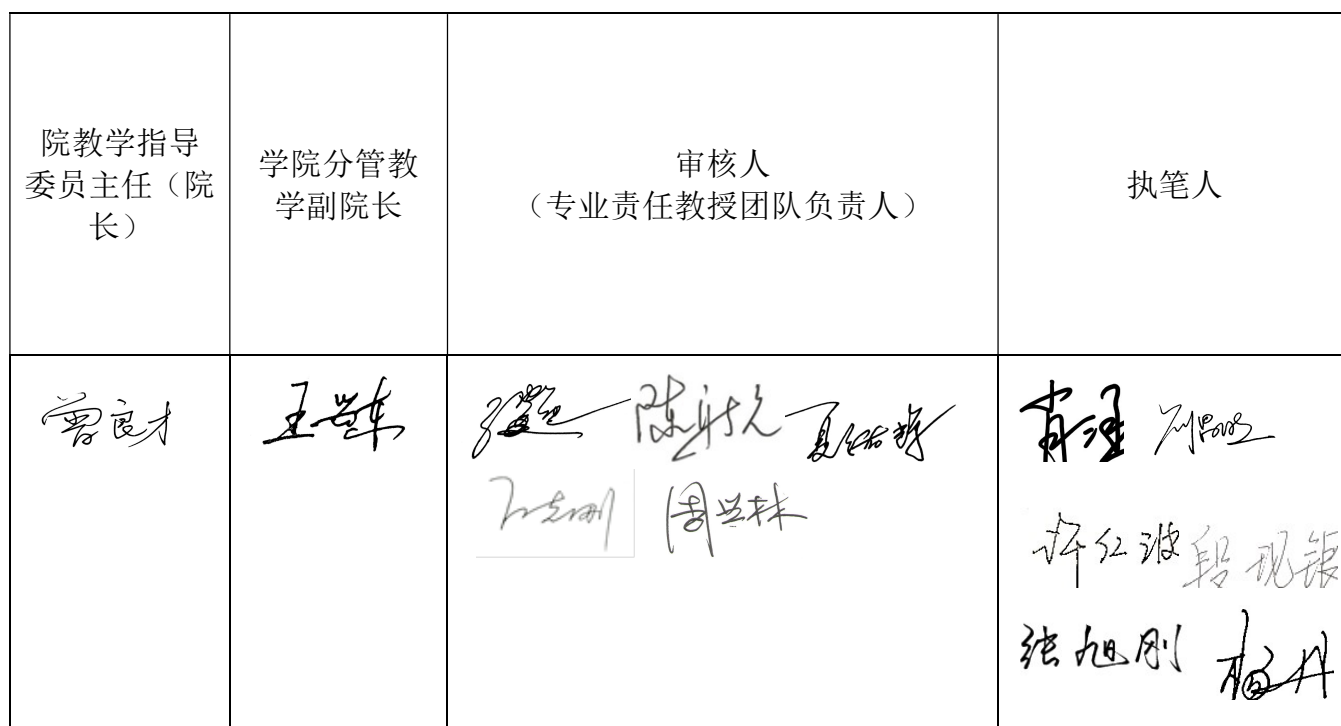 院教学指导
委员主任（院
长）
学院分管教
学副院长
审核人
（专业责任教授团队负责人）
执笔人
曾良才
王兴东
周兴林
许红波 段现银
张旭刚 杨丹